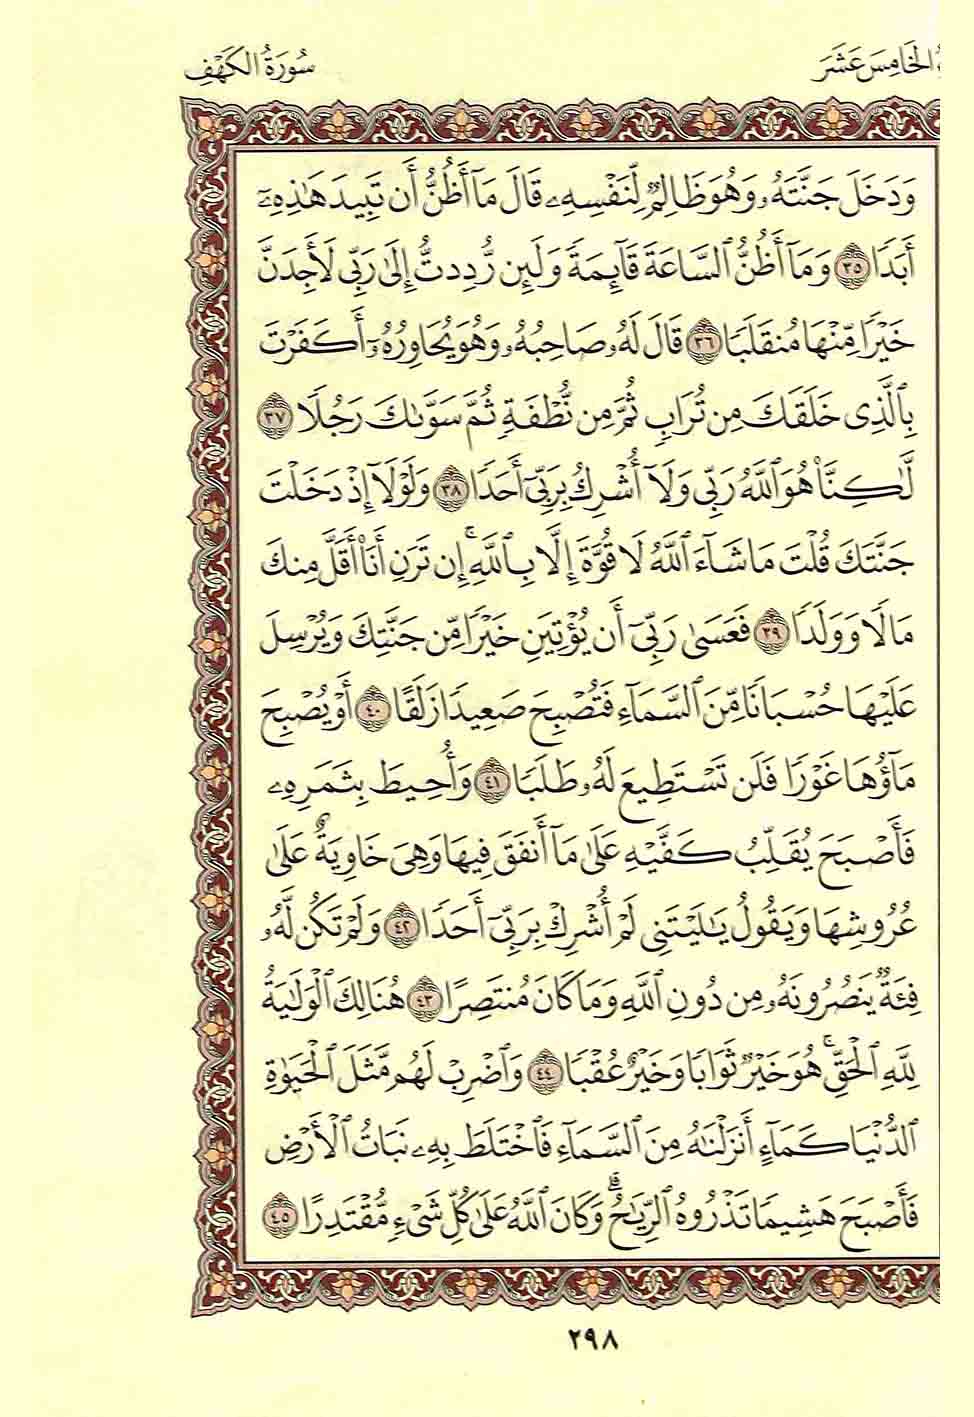 الخامس عشر
سورة الكهف
وَدَخَلَ جَنَّتَهُۥ وَهُوَ ظَالِمٌ لِّنَفْسِهِۦ قَالَ مَآ أَظُنُّ أَن تَبِيدَ هَٰذِهِۦٓ
أَبَدًا ٣٥ وَمَآ أَظُنُّ ٱلسَّاعَةَ قَآئِمَةً وَلَئِن رُّدِدتُّ إِلَىٰ رَبِّى لَأَجِدَنَّ
خَيْرًا مِّنْهَا مُنقَلَبًا ٣٦ قَالَ لَهُۥ صَاحِبُهُۥ وَهُوَ يُحَاوِرُهُۥٓ أَكَفَرْتَ
بِٱلَّذِى خَلَقَكَ مِن تُرَابٍ ثُمَّ مِن نُّطْفَةٍ ثُمَّ سَوَّىٰكَ رَجُلًا ٣٧
لَّٰكِنَّا۠ هُوَ ٱللَّهُ رَبِّى وَلَآ أُشْرِكُ بِرَبِّىٓ أَحَدًا ٣٨ وَلَوْلَآ إِذْ دَخَلْتَ
جَنَّتَكَ قُلْتَ مَا شَآءَ ٱللَّهُ لَا قُوَّةَ إِلَّا بِٱللَّهِ ۚ إِن تَرَنِ أَنَا۠ أَقَلَّ مِنكَ
مَالًا وَوَلَدًا ٣٩ فَعَسَىٰ رَبِّىٓ أَن يُؤْتِيَنِ خَيْرًا مِّن جَنَّتِكَ وَيُرْسِلَ
عَلَيْهَا حُسْبَانًا مِّنَ ٱلسَّمَآءِ فَتُصْبِحَ صَعِيدًا زَلَقًا ٤٠ أَوْ يُصْبِحَ
مَآؤُهَا غَوْرًا فَلَن تَسْتَطِيعَ لَهُۥ طَلَبًا ٤١ وَأُحِيطَ بِثَمَرِهِۦ
فَأَصْبَحَ يُقَلِّبُ كَفَّيْهِ عَلَىٰ مَآ أَنفَقَ فِيهَا وَهِىَ خَاوِيَةٌ عَلَىٰ
عُرُوشِهَا وَيَقُولُ يَٰلَيْتَنِى لَمْ أُشْرِكْ بِرَبِّىٓ أَحَدًا ٤٢ وَلَمْ تَكُن لَّهُۥ
فِئَةٌ يَنصُرُونَهُۥ مِن دُونِ ٱللَّهِ وَمَا كَانَ مُنتَصِرًا ٤٣ هُنَالِكَ ٱلْوَلَٰيَةُ
لِلَّهِ ٱلْحَقِّ ۚ هُوَ خَيْرٌ ثَوَابًا وَخَيْرٌ عُقْبًا ٤٤ وَٱضْرِبْ لَهُم مَّثَلَ ٱلْحَيَوٰةِ
ٱلدُّنْيَا كَمَآءٍ أَنزَلْنَٰهُ مِنَ ٱلسَّمَآءِ فَٱخْتَلَطَ بِهِۦ نَبَاتُ ٱلْأَرْضِ
فَأَصْبَحَ هَشِيمًا تَذْرُوهُ ٱلرِّيَٰحُ ۗ وَكَانَ ٱللَّهُ عَلَىٰ كُلِّ شَىْءٍ مُّقْتَدِرًا ٤٥
٢٩٨